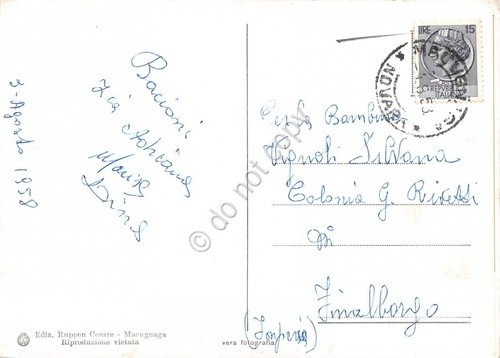 3-Agosto 1958
Bacioni
Zia Adriana
Per la Bambina
Vignoli Silvana
Colonia G. Rivetti
Di
Finalborgo
(Imperia)
LIRE 15
ITALIANE
MACUGNAGA
Ediz. Ruppen Cesare - Macugnaga
Riproduzione vietata
vera fotografia
do not copy